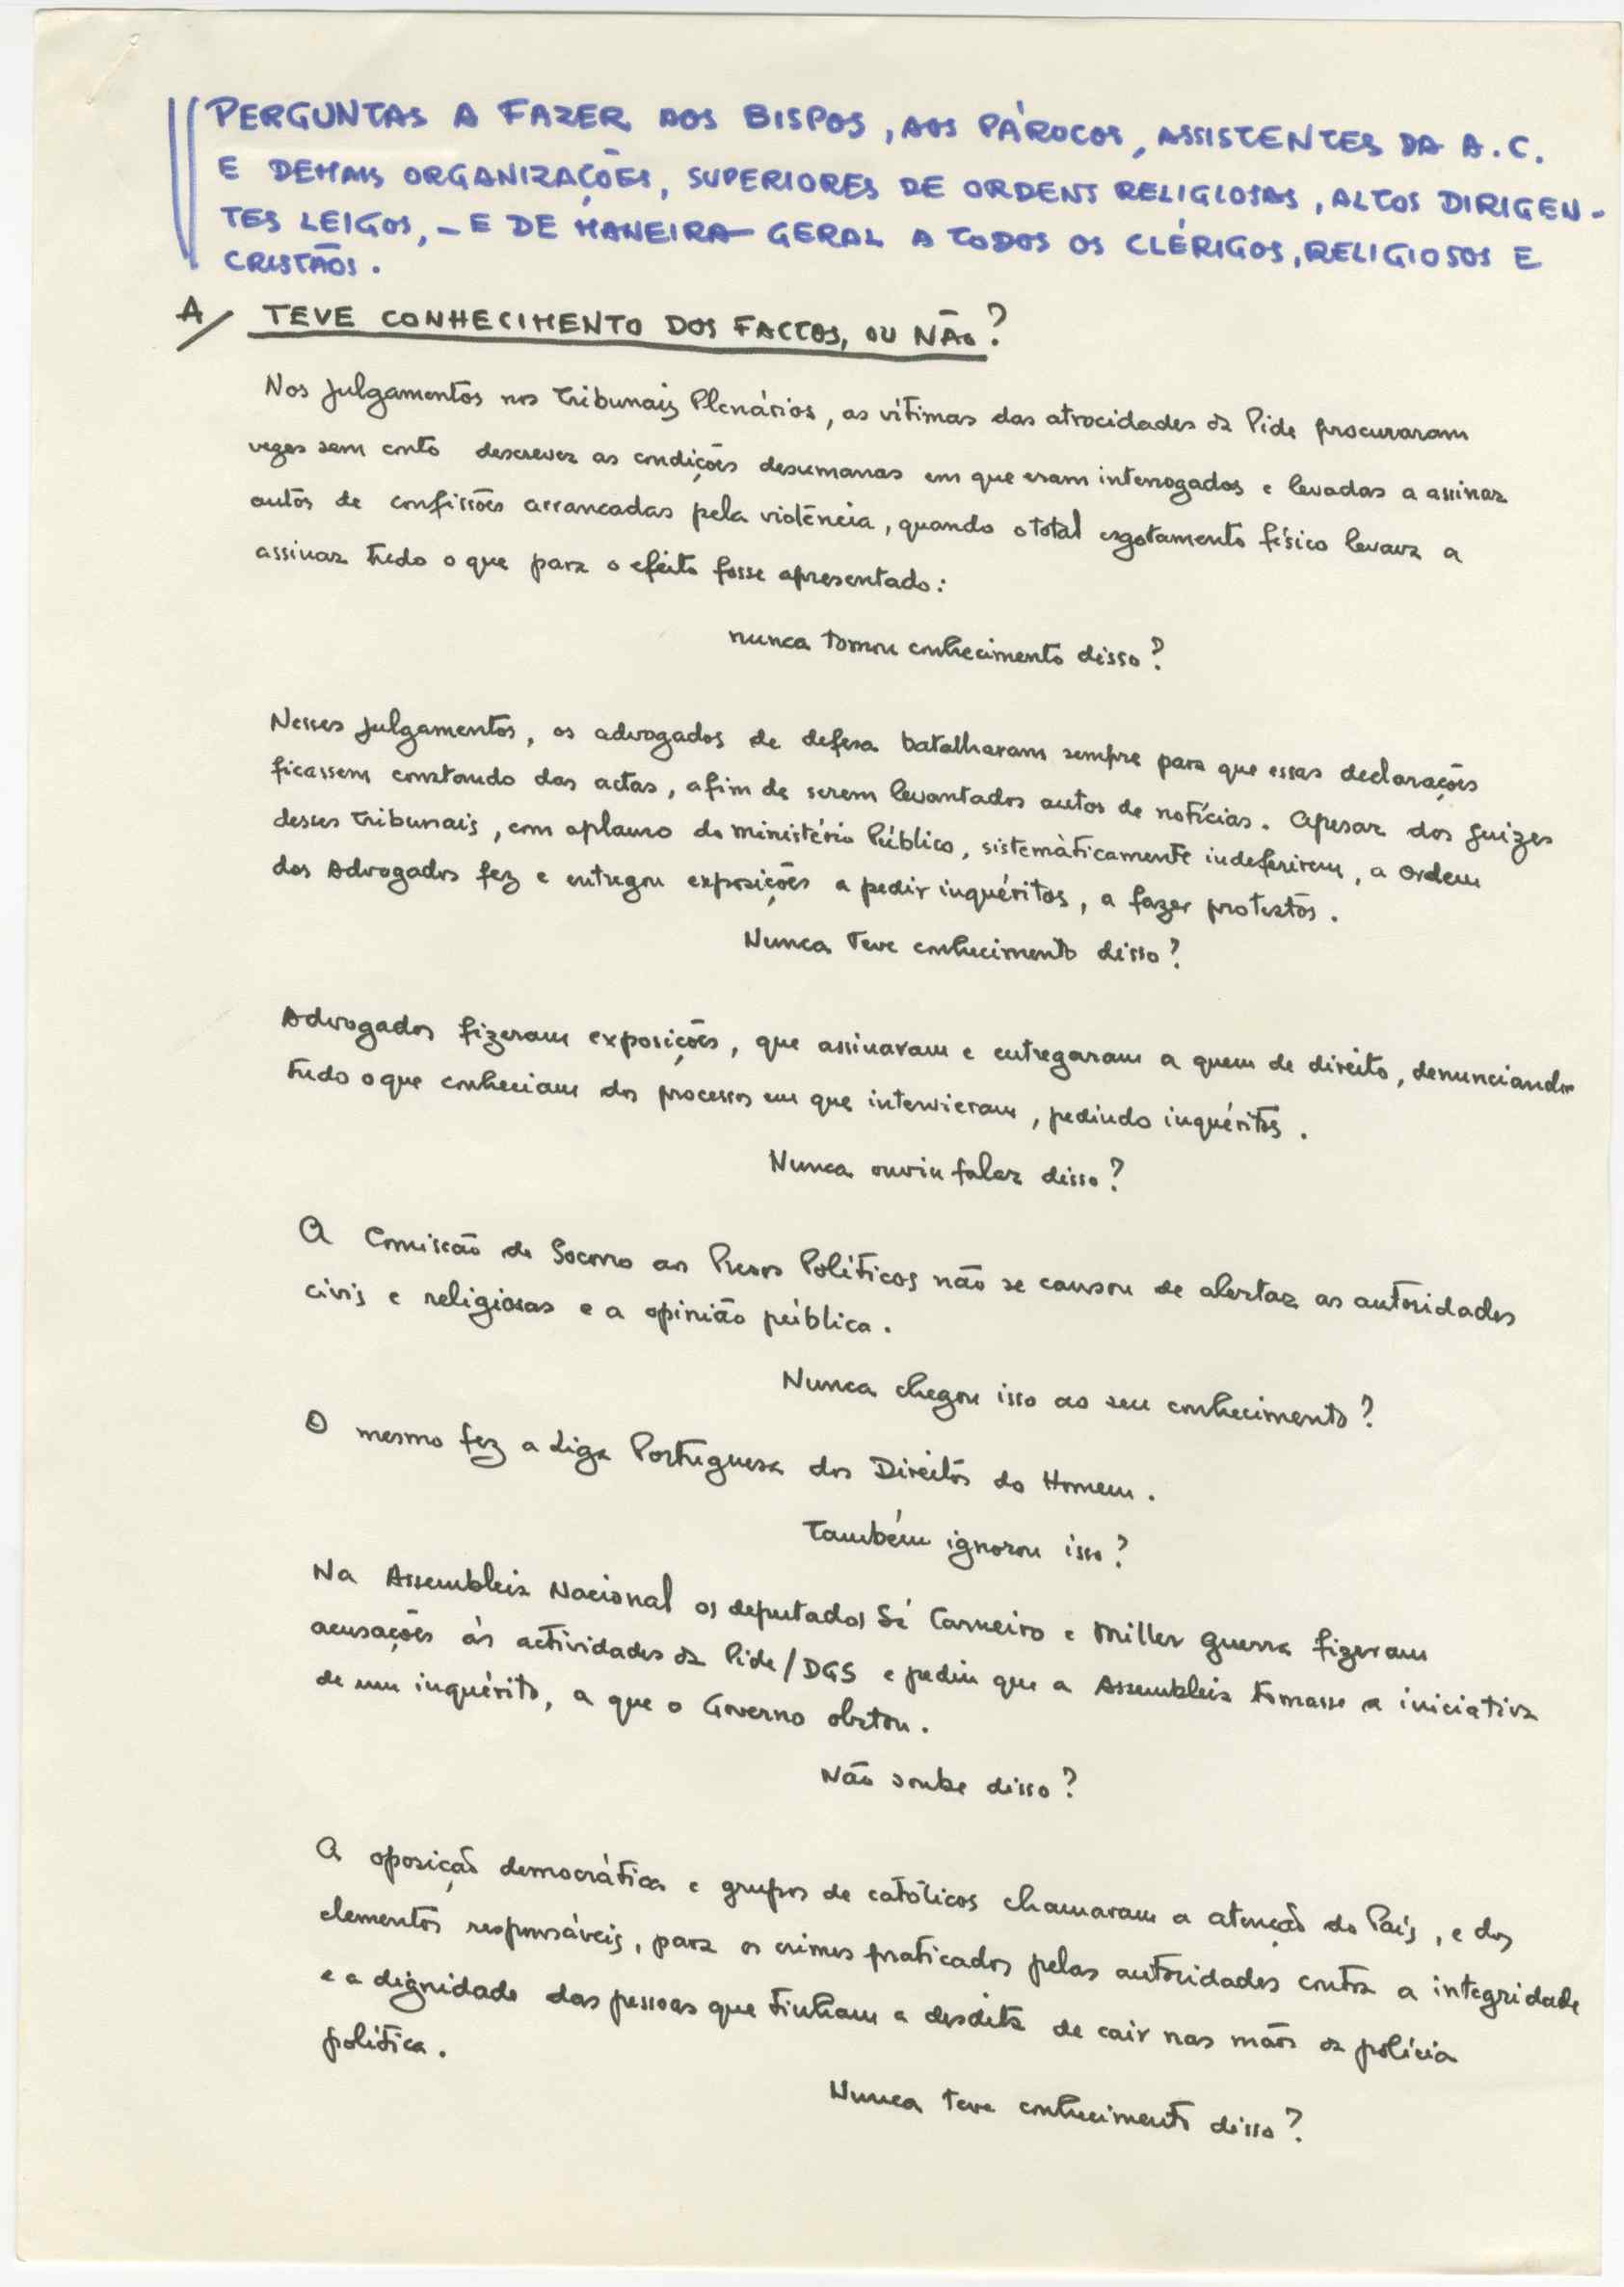 PERGUNTAS A FAZER AOS BISPOS, AOS PÁROCOS, ASSISTENTES DA A.C.
E DEMAIS ORGANIZAÇÕES, SUPERIORES DE ORDENS RELIGIOSAS, ALTOS DIRIGEN-
TES LEIGOS, – E DE MANEIRA GERAL A TODOS OS CLÉRIGOS, RELIGIOSOS E
CRISTÃOS.
A/ TEVE CONHECIMENTO DOS FACTOS, OU NÃO?
Nos julgamentos nos Tribunais Plenários, as vítimas das atrocidades da Pide procuraram
vezes sem conto descrever as condições desumanas em que eram interrogados e levadas a assinar
autos de confissões arrancadas pela violência, quando o total esgotamento físico levava a
assinar tudo o que para o efeito fosse apresentado:
nunca tomou conhecimento disso?
Nesses julgamentos, os advogados de defesa batalharam sempre para que essas declarações
ficassem constando das actas, afim de serem levantados autos de notícias. Apesar dos juizes
desses tribunais, com aplauso do ministério Público, sistemàticamente indeferirem, a Ordem
dos Advogados fez e entregou exposições a pedir inquéritos, a fazer protestos.
Nunca teve conhecimento disso?
Advogados fizeram exposições, que assinaram e entregaram a quem de direito, denunciando
tudo o que conheciam dos processos em que intervieram, pedindo inquéritos.
Nunca ouviu falar disso?
A Comissão de Socorro aos Presos Políticos não se cansou de alertar as autoridades
civis e religiosas e a opinião pública.
Nunca chegou isso ao seu conhecimento?
O mesmo fez a Liga Portuguesa dos Direitos do Homem.
Também ignorou isso?
Na Assembleia Nacional os deputados Sá Carneiro e Miller Guerra fizeram
acusações às actividades da Pide/DGS e pediu que a Assembleia tomasse a iniciativa
de um inquérito, a que o Governo obstou.
Não soube disso?
A oposição democrática e grupos de católicos chamaram a atenção do País, e dos
elementos responsáveis, para os crimes praticados pelas autoridades contra a integridade
e a dignidade das pessoas que tinham a desdita de cair nas mãos da polícia
política.
Nunca teve conhecimento disso?